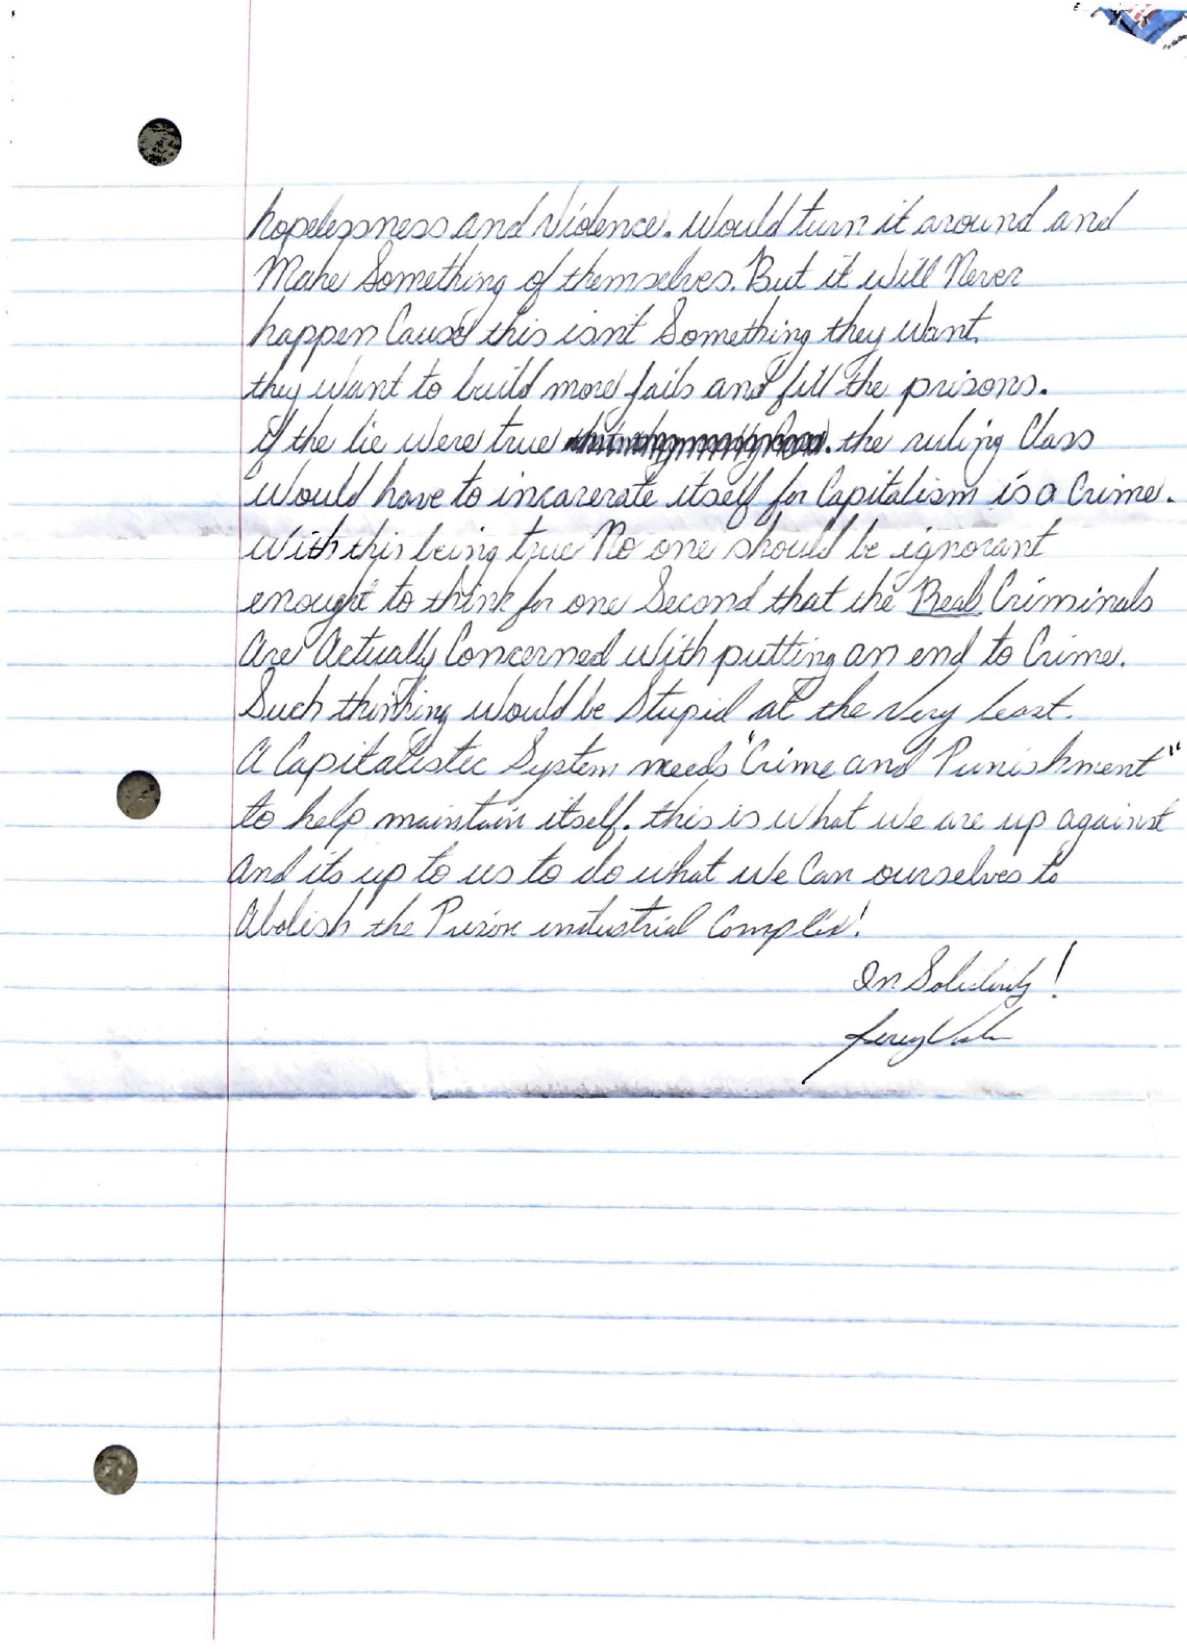 hopelessness and violence. Would turn it around and
Make Something of themselves. But it will Never
happen Cause this isn't Something they want.
they want to build more jails and fill the prisons.
if the lie were true the ruling Class
Would have to incarerate itself for Capitalism is a Crime.
With this being true No one should be ignorant
enought to think for one Second that the Real Criminals
are Actually Concerned with putting an end to Crime.
Such thinking would be Stupid at the very least.
A Capitalistic System needs "Crime and Punishment"
to help maintain itself. this is what we are up against
and its up to us to do what we Can ourselves to
Abolish the Prison industrial Complex!
In Solidarity!